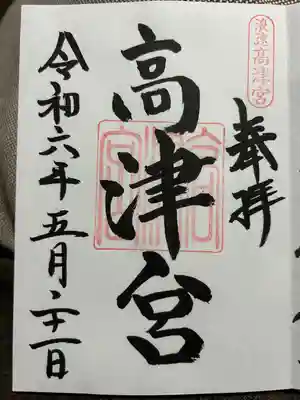 浪速高津宮
奉拝
高津宮
令和六年五月二十一日